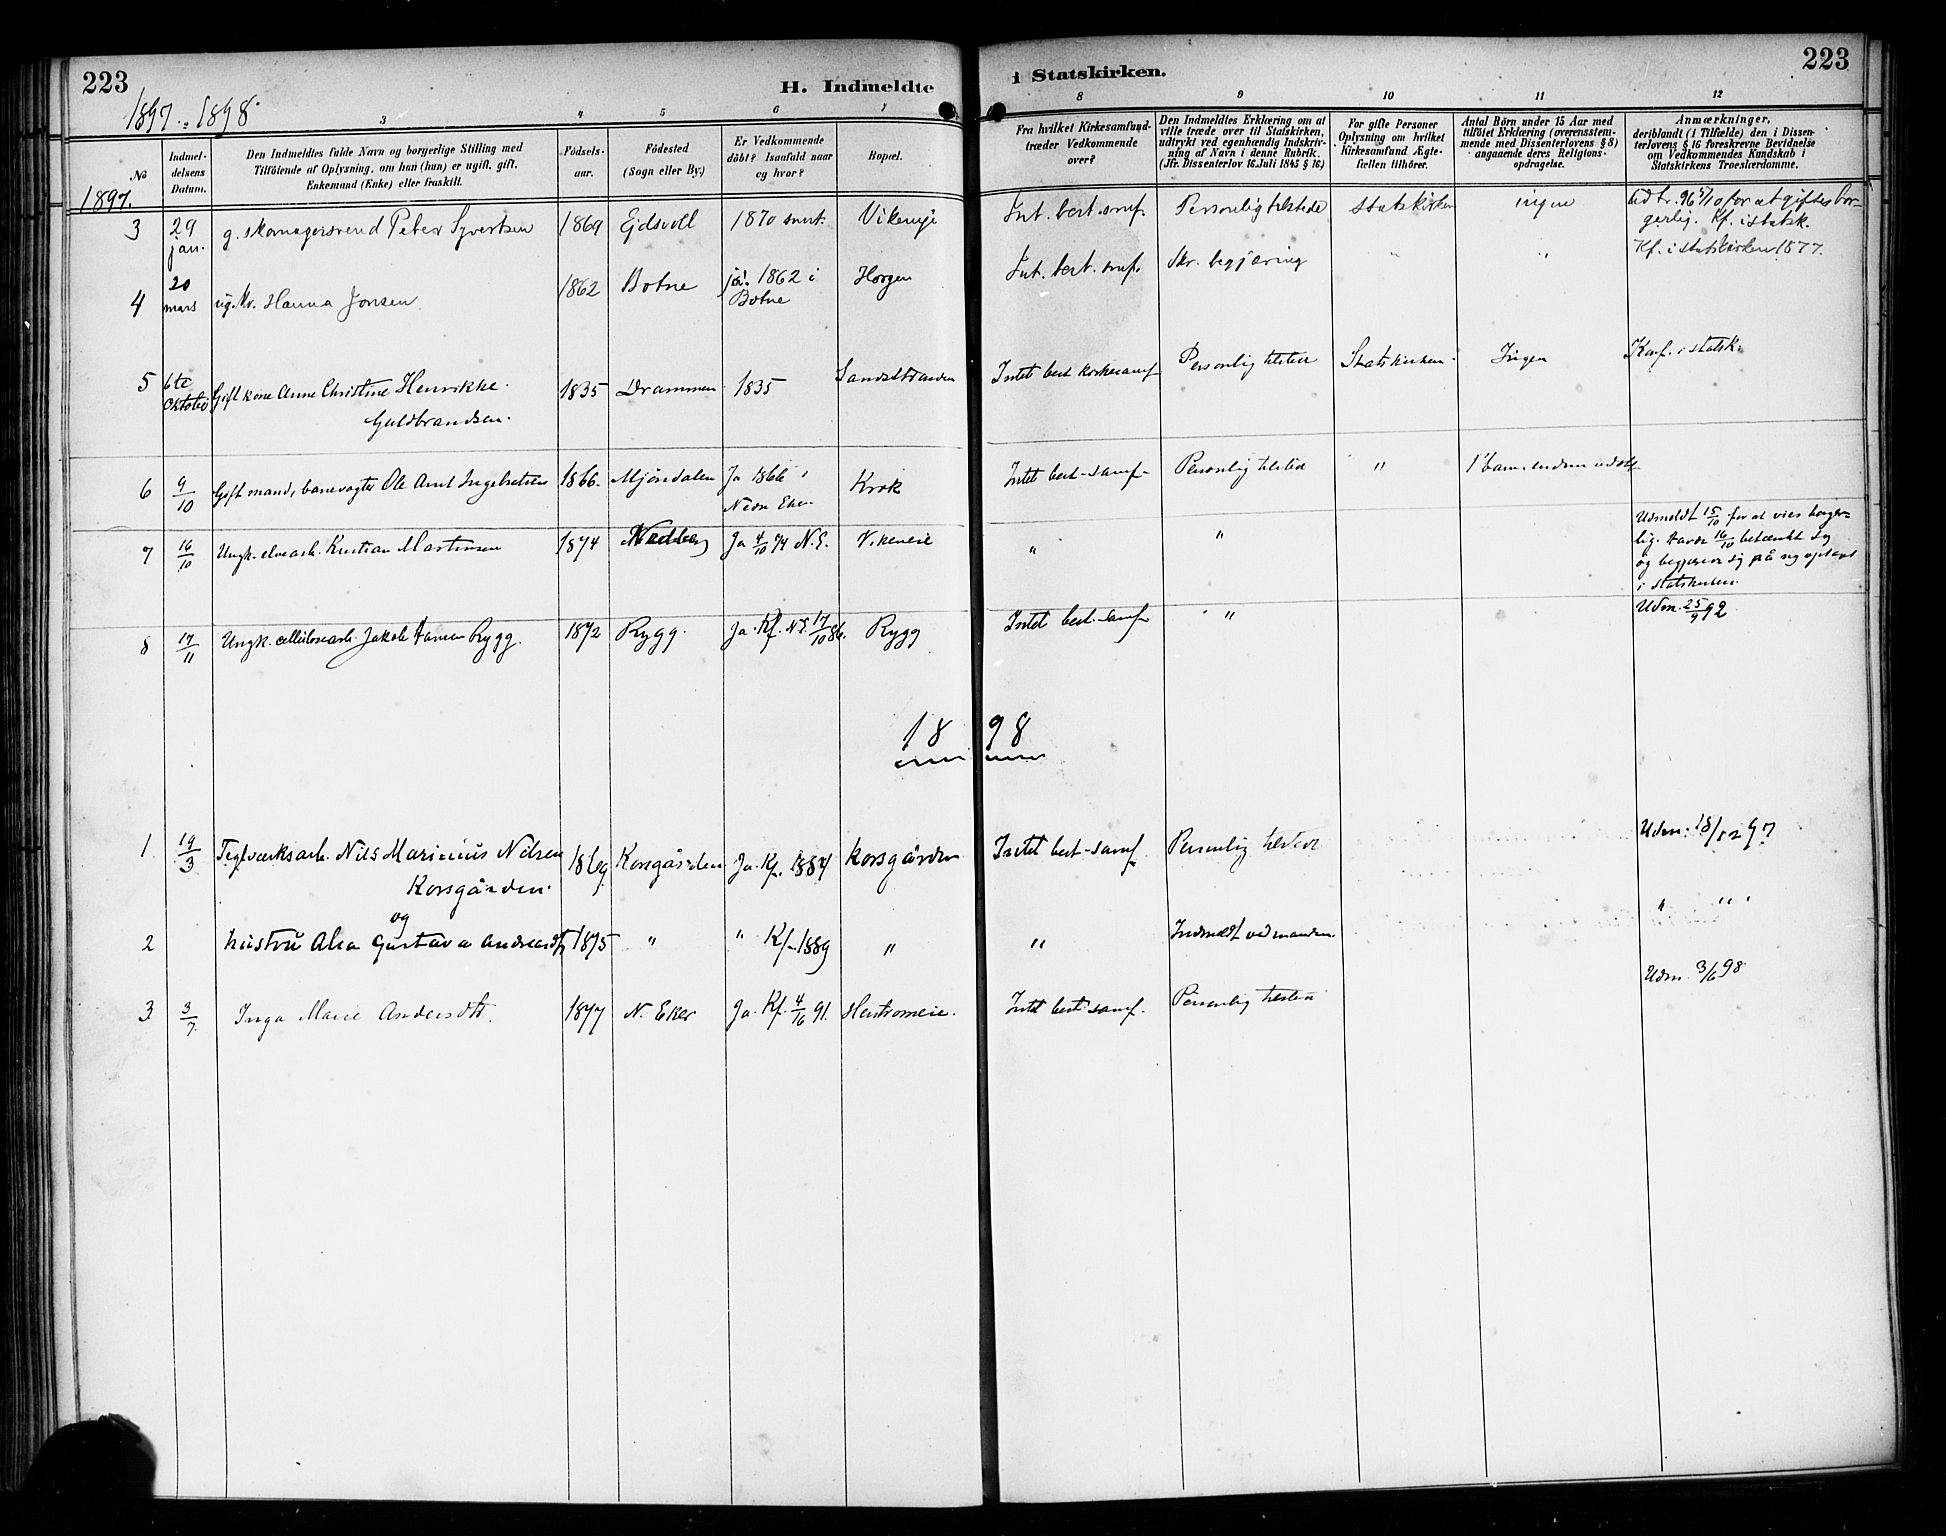 223
H. Indmeldte
i Statskirken.
223
1897-1898.
3 4 5 6 7 8 9 10 11 12
No
Indmel-
delsens
Datum.
Den Indmeldtes fulde Navn og borgerlige Stilling med
Tilföiende af Oplysning, om han (hun) er ugift, gift,
Enkemand (Enke) eller fraskilt.
Födsels-
aar.
Födested
(Sogn eller By.)
Er Vedkommende
döbt? Isaafald naar
og hvor?
Bopæl.
Fra hvilket Kirkesamfund
træder Vedkommende
over?
Den Indmeldtes Erklæring om at
ville træde over til Statskirken,
udtrykt ved egenhændig Indskriv-
ning af Navn i denne Rubrik.
(Jfr. Dissenterlov 16 Juli 1845 § 16)
For gifte Personer
Oplysning om hvilket
Kirkesamfund Ægte-
fællen tilhörer.
Antal Börn under 15 Aar med
tilföiet Erklæring (overensstem-
mende med Dissenterlovens § 8)
angaaende deres Religions-
opdragelse.
Anmærkninger,
deriblandt (i Tilfælde) den i Dissen-
terlovens § 16 foreskrevne Bevidnelse
om Vedkommendes Kundskab i
Statskirkens Troeslærdomme.
1897.
3 29 jan. g. skomagersvend Peter Syvertsen 1869 Ejdsvoll 1870 smst. Vikeneje Int. best. smf. Personlig tilstede statskirken ingen Udtr. 96 5/10 for at giftes bor-
gerlig. Kf. i statsk.
4 20 mars ug. kv. Hanna Jonsen 1862 Botne ja. 1862 i Botne Horgen Int. best. smf. Skr. begjæring " " Kf. i statskirken 1877.
5 6te Oktober Gift kone Anne Christine Henrikke
Guldbrandsen. 1835 Drammen 1835 Sandstranden Intet best kirkesamf Personlig tilsted Statskirken Ingen Konf. i statsk.
6 9/10 Gift mand, banevogter Ole Ingebretsen 1866. Mjöndalen Ja 1866 i
Nedre Eker Krok Intet best-samf- Personlig tilsted " 1 barn
7 16/10 Ungk. Kristian Martinsen 1874 Ja 4/10 74 N.E. Vikeneie " " Udmeldt 15/10 for at vies borger-
lig. Havde 16/10 betænkt sig
og begjærer sig på ny optaget
i statskirken.
8 17/11 Ungk. cellulosearb. Jakob Hansen Rygg. 1872 Rygg. Ja. Kf. N.E. 17/10 86. Rygg Intet best-samf- " Udm. 25/9 92
1898
1 19/3 Teglværksarb. Nils Marinius Nilsen
Korsgården. 1869 Korsgården Ja. Kf. 1884 Korsgården Intet best-samf Personlig tilstede Udm: 18/12 97
og
2 hustru Gustava Andreasdt 1875 " " Kf. 1889 " " Indmeldt ved manden. " " "
3 3/7 Inga Marie Andersdt. 1877 N. Eker Ja. Kf. 4/16 91. Intet best samf. Personlig tilsted Udm. 3/6 98